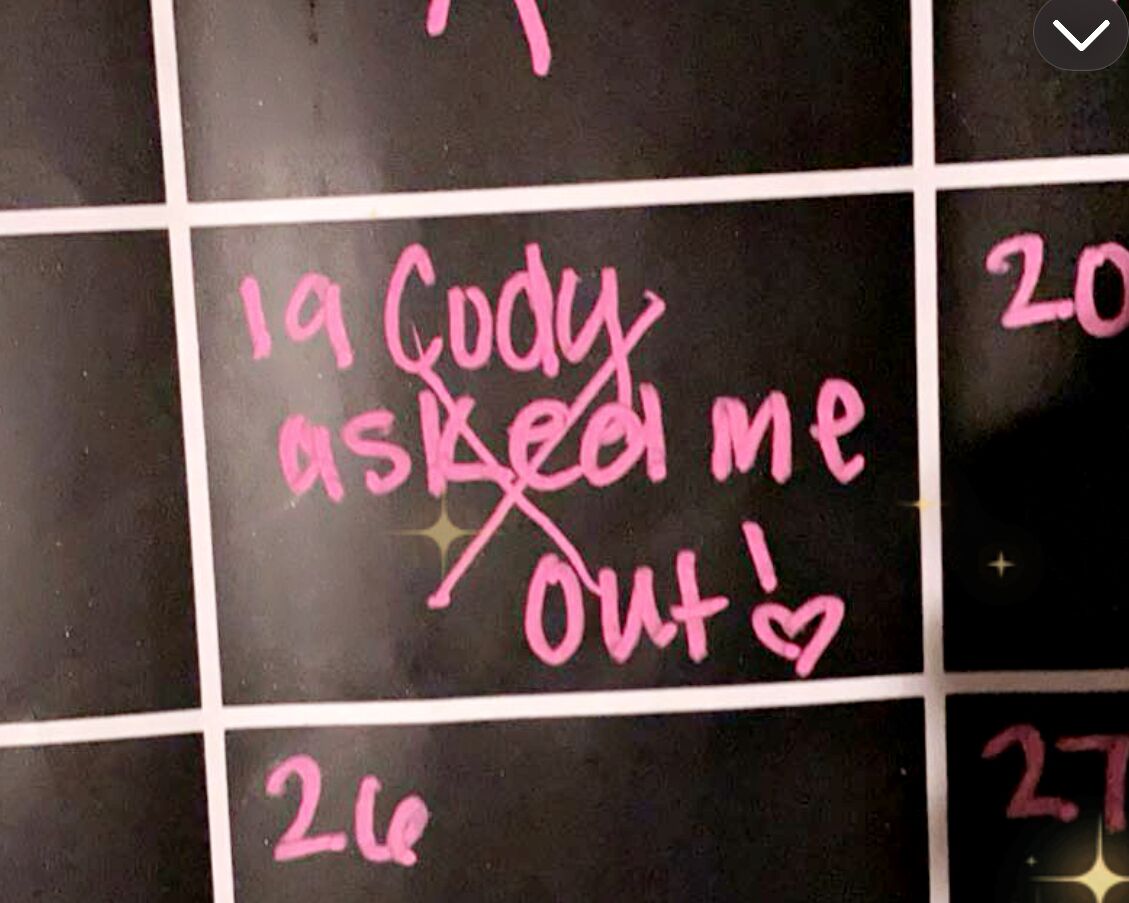 19 Cody
asked me
out!
20
26
27